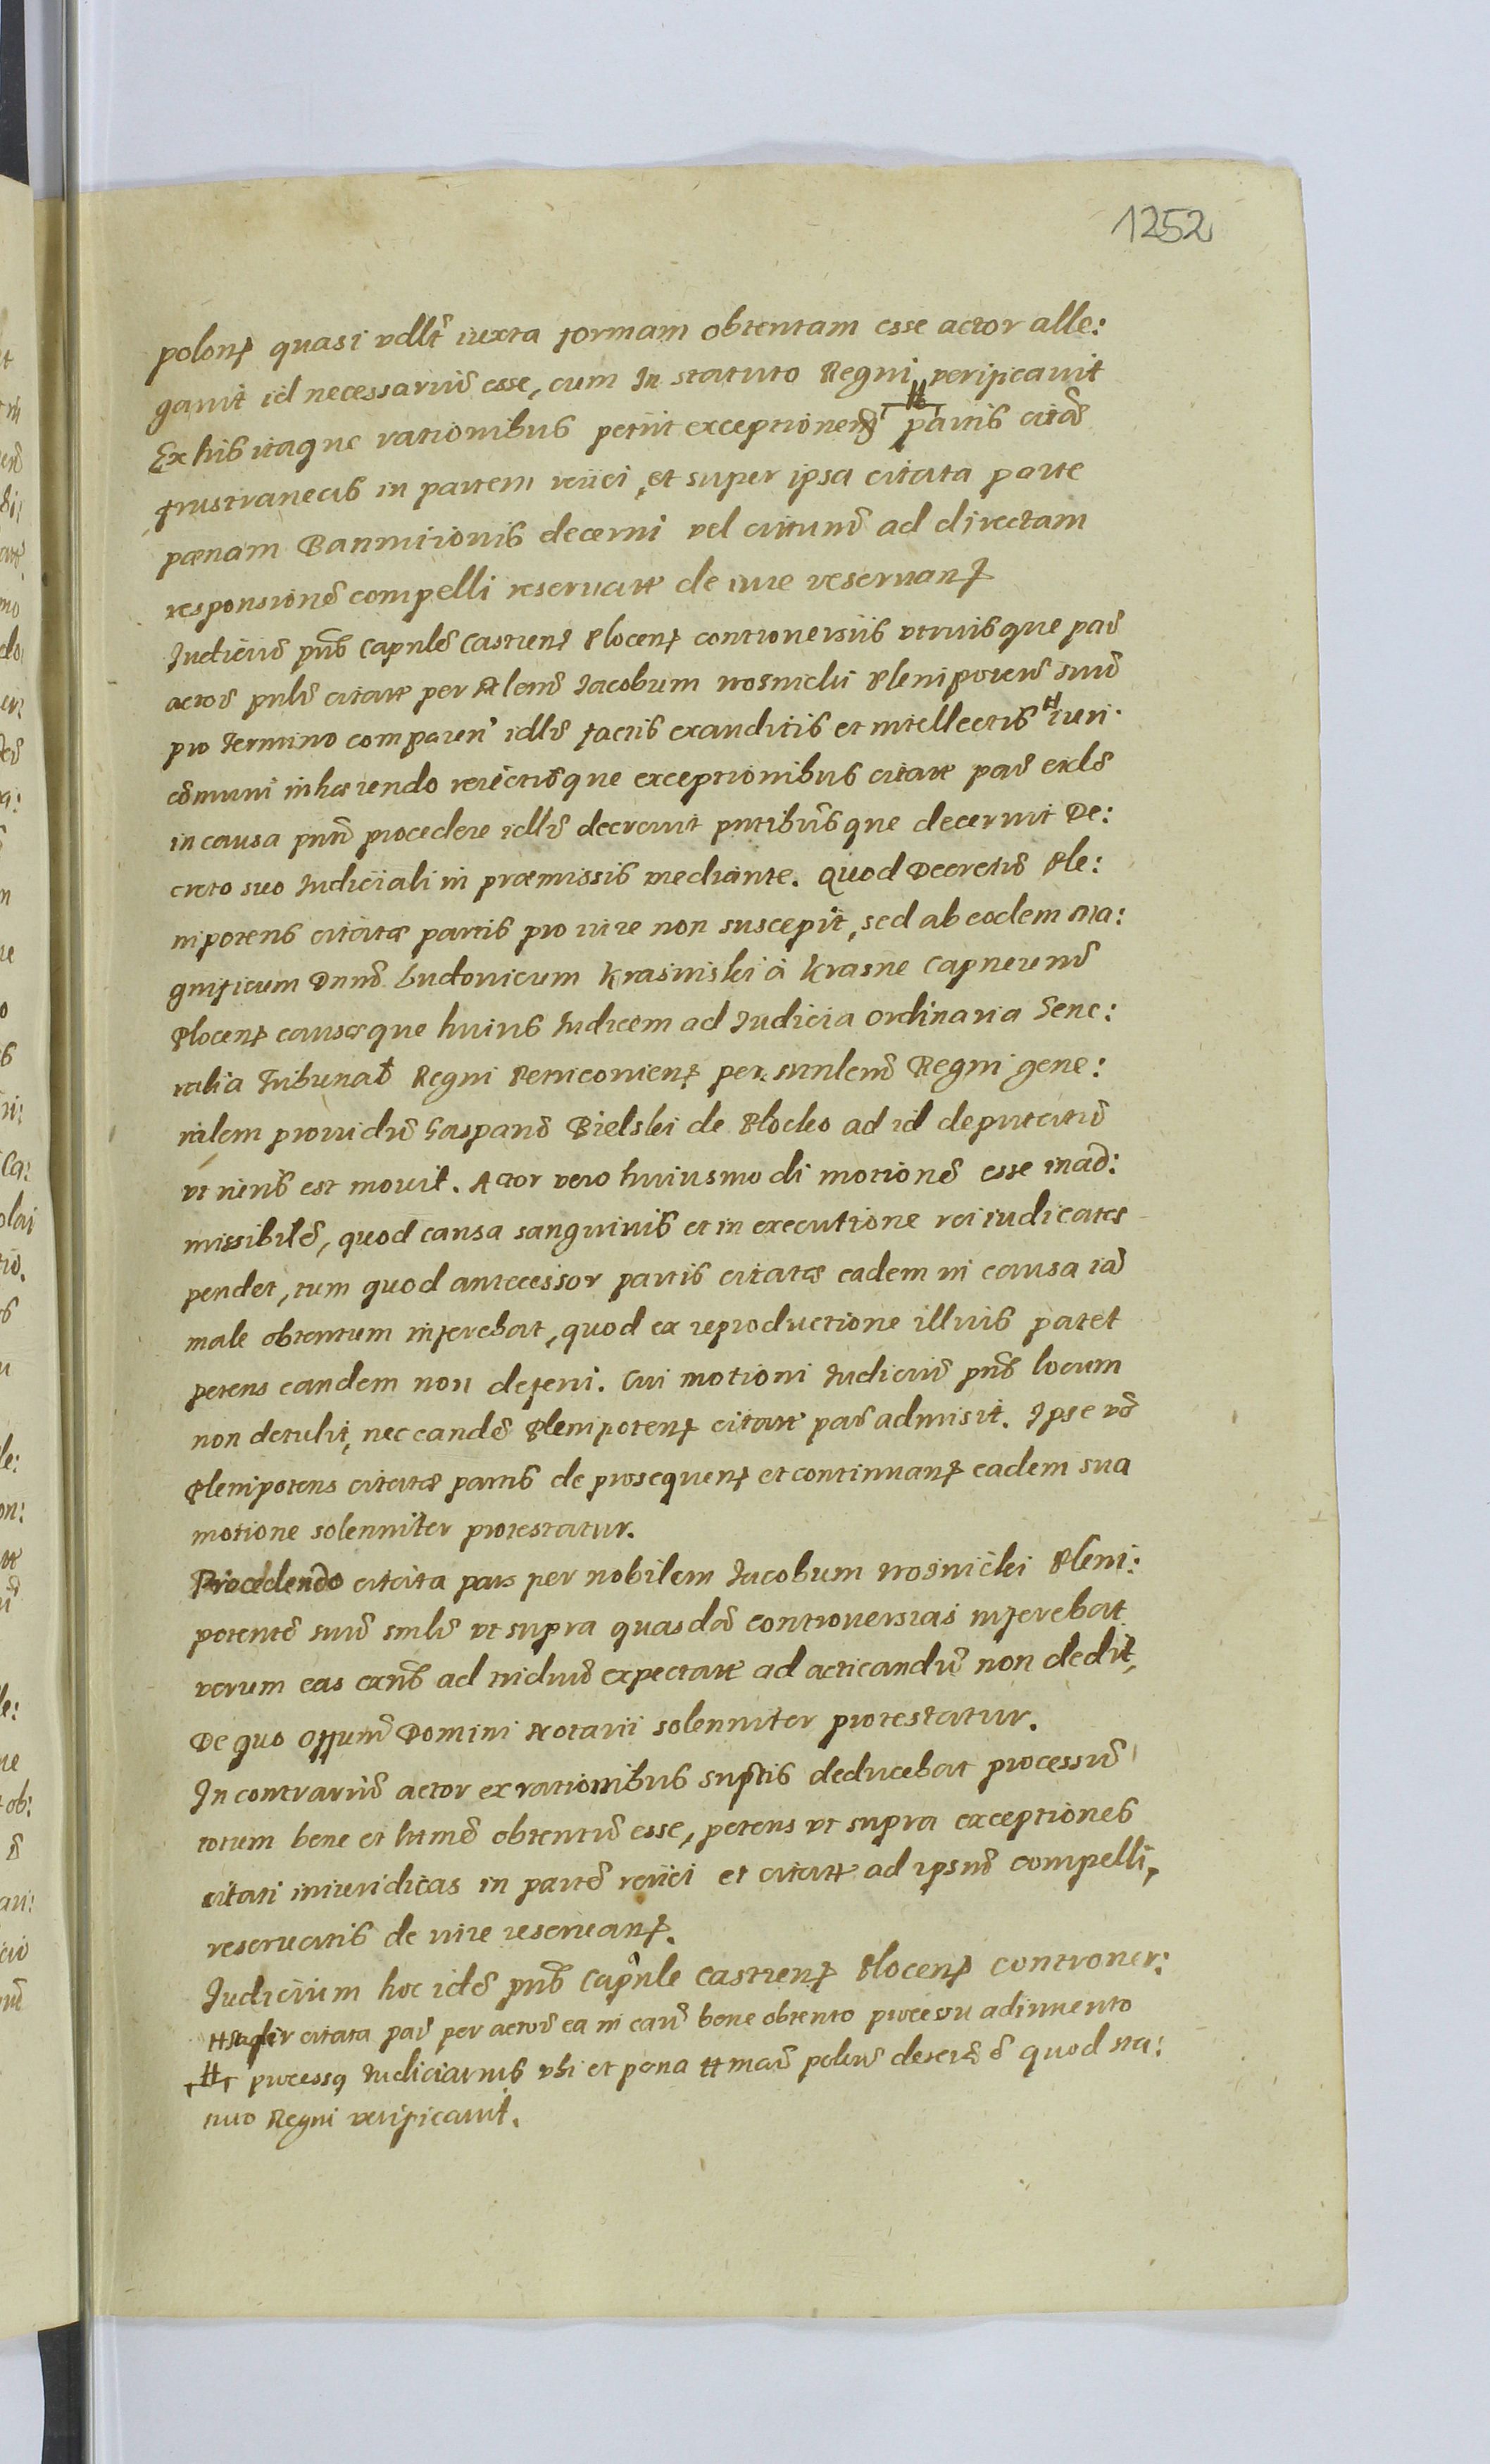 1252
polonꝭ quasi vdlt̃ iuxta formam obtentam esse actor alle:
gauit id necessariũ esse, cum In statuto Regni verificauit
Ex his itaque rationibus petiit exceptiones partis citã
frustraneas in partem reiici, et super ipsa citata parte
pœnam Bannitionis decerni vel citatum ad directam
responsionẽ compelli reseruatꝭ de iure reseruanꝭ
Iudiciũ pñs Capnlẽ Castrenẽ Plocenꝭ controuersiis vtriusque par̃
actoẽ pnlr̃ citatꝭ per Nlem̃ Iacobum Nosnicki Plenipotem̃ suũ
pro termino comparen̄ idlr̃ factis exauditis et intellectis # iuri
cõmuni inhærendo reiectisque exceptionibus citatꝭ par̃
in causa pnti procedere idlr̃ decreuit partibusque decernit De:
creto suo Iudiciali in præmissis mediante. Quod Decretũ Ple:
nipotens citatæ partis pro iure non suscepit, sed ab eodem Ma:
gnificum Dnũ Ludouicum Krasinski à Krasne Capneum̃
Plocenꝭ causæque huius Iudicem ad Iudicia Ordinaria Gene:
ralia Tribunaƚ Regni Petricouienꝭ per mnlem̃ Regni gene:
ralem prouidũ Gasparũ Bielski de Plocko ad id deputatũ
vt moris est mouit. Actor vero huiusmodi motionẽ esse inad:
missibilẽ, quod causa sanguinis et in executione rei iudicatæ
pendet, tum quod antecessor partis citatæ eadem in causa iã
male obtentum inferebat, quod ex reproductione illius patet
petens eandem non deferri. Cui motioni Iudiciũ pñs locum
non detulit, nec eandẽ Plenipotenꝭ citatꝭ par̃ admisit. Ipse vẽ
Plenipotens citatæ partis de prosequenꝭ et continuanꝭ eadem sua
motione solenniter protestatur.
Procedendo citata pars per nobilem Iacobum Nosnicki Pleni:
potentẽ suũ smlr̃ vt supra quasdã controuersias inferebat
verum eas exñs ad triduũ expectatꝭ ad acticandũ non dedit,
De quo Offium̃ Domini Notarii solenniter protestatur.
In contrariũ actor ex rationibus suptis deducebat processũ
totum bene et ltimẽ obtentũ esse, petens vt supra exceptiones
citati iniuridicas in partẽ reiici et citatꝭ ad ipsum̃ compelli,
reseruatis de iure reseruanꝭ.
Iudicium hoc idẽ pñs Capnle Castrenꝭ Plocenꝭ Controuer:
# super citata par̃ per actoẽ ea in caũ bene obtento processu adinuento
# processꝰ Iudiciarius vbi et pena # quod sta:
tuto Regni verificauit.